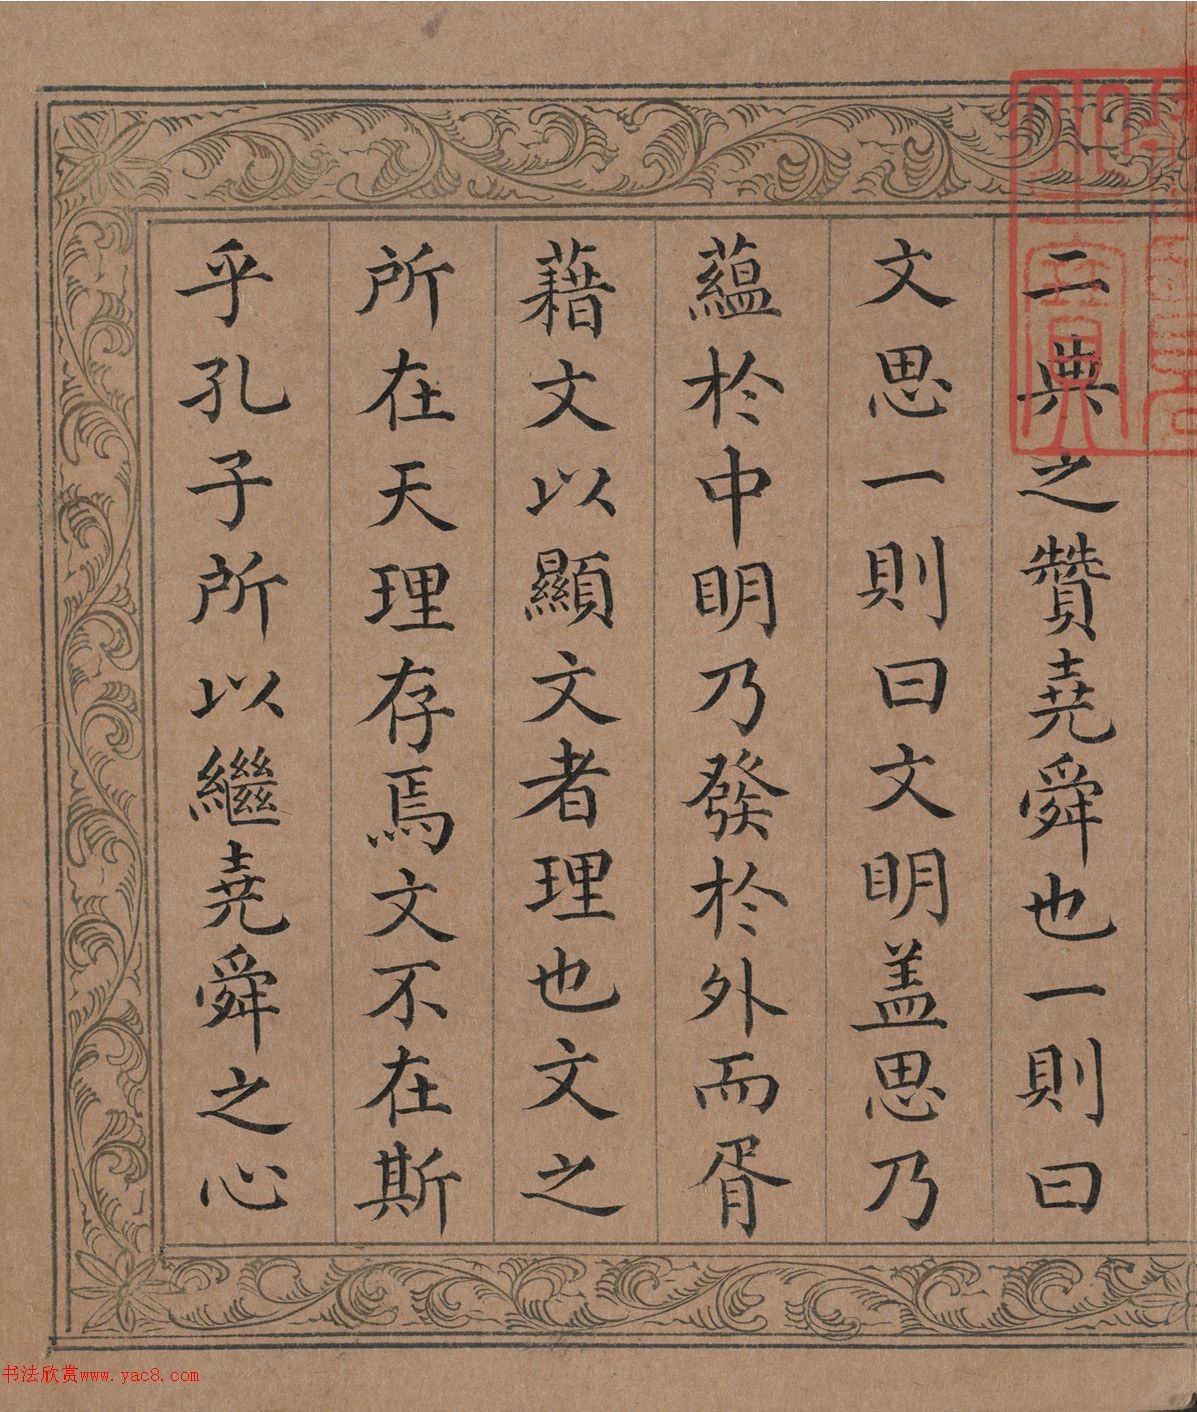 二典之贊堯舜也一則曰
文思一則曰文明盖思乃
藴於中明乃發於外而胥
藉文以顯文者理也文之
所在天理存焉文不在斯
乎孔子所以繼堯舜之心
书法欣赏www.yac8.com